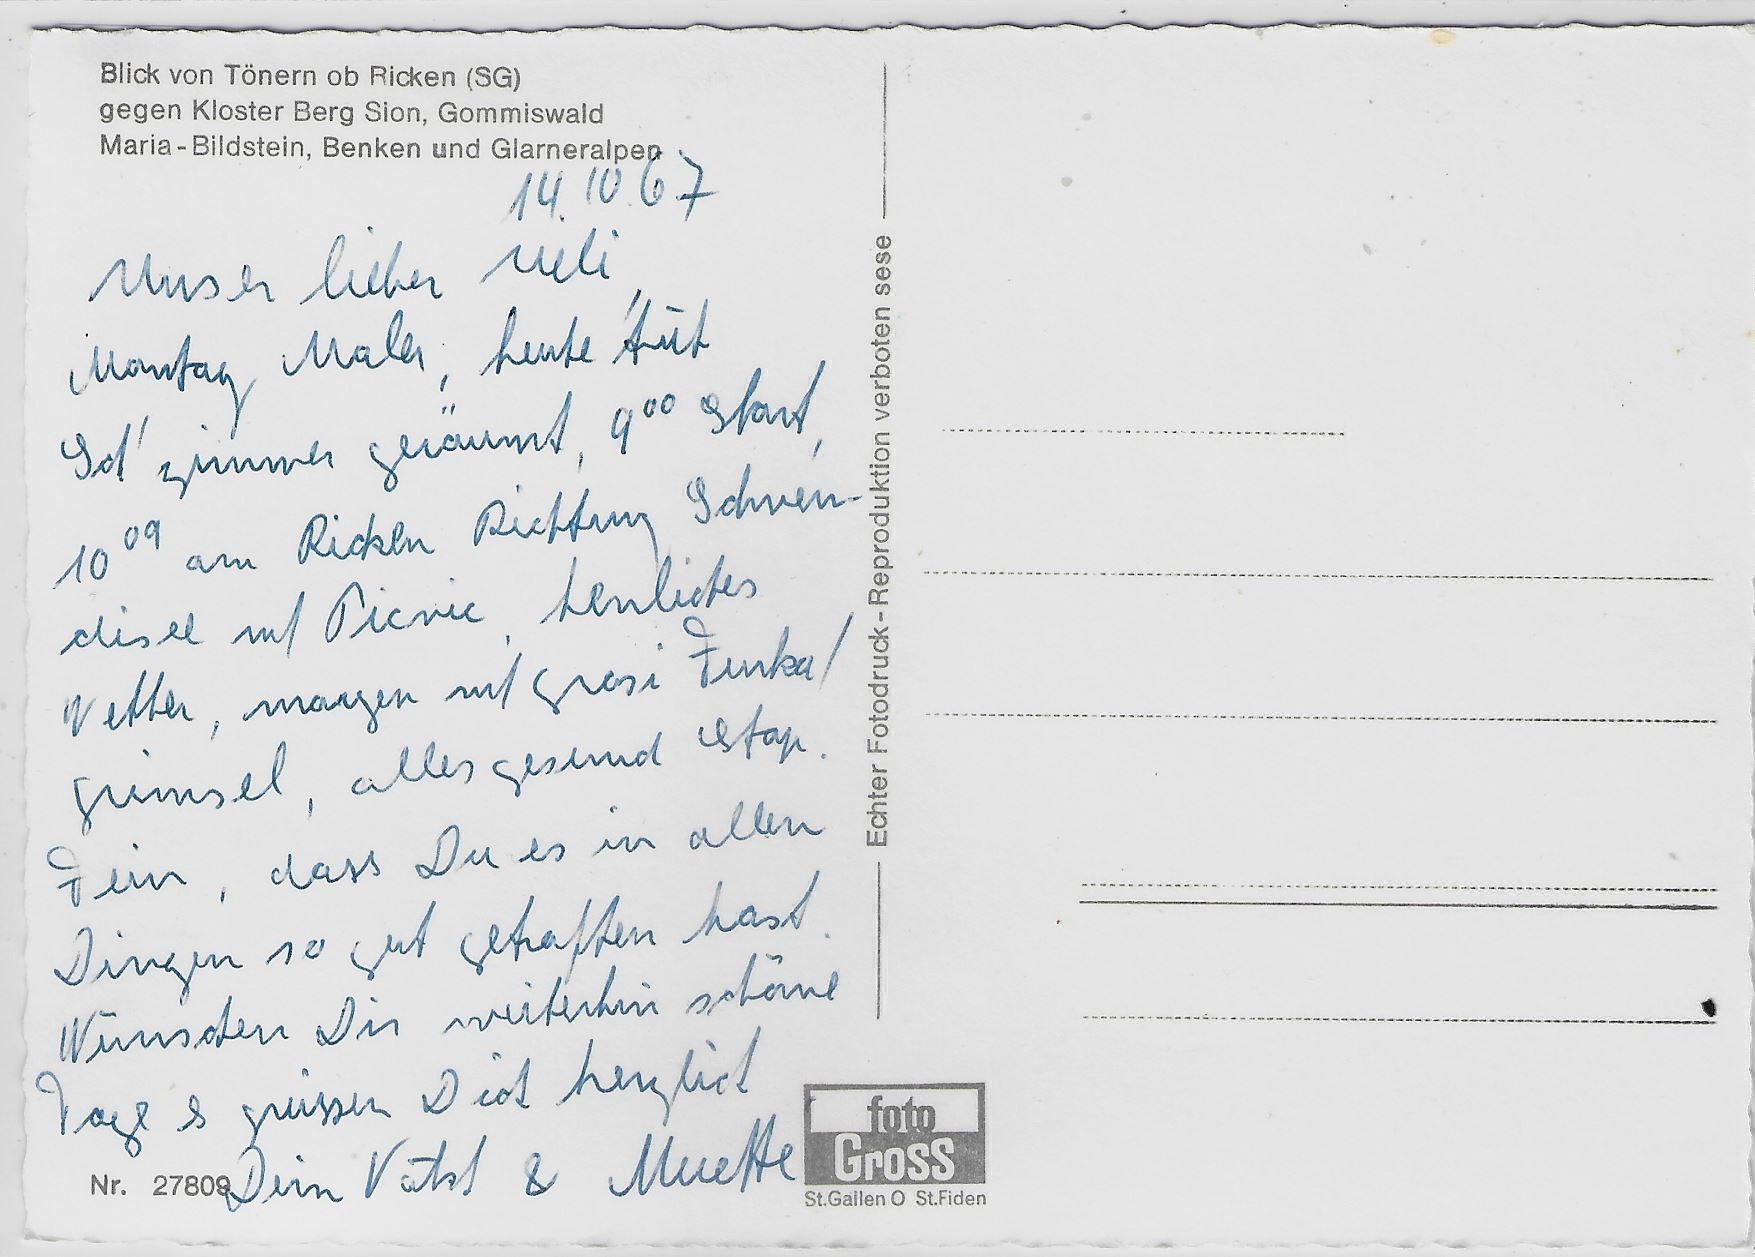 Blick von Tönern ob Ricken (SG)
gegen Kloster Berg Sion, Gommiswald
Maria-Bildstein, Benken und Glarneralpen
14.10.67
Unser lieber Ueli,
Montag Maler, heute
zimmer geräumt, 9⁰⁰ Start,
10⁰⁹ am Ricken Richtung Schwen-
disee mit Picnic, herrliches
Wetter, morgen mit Grosi Furka/
Grimsel, alles gesund & tap.
Fein, dass Du es in allen
Dingen so gut getroffen hast.
Wünschen Dir weiterhin schöne
Tage & grüssen Dich herzlich
Dein & Muette
Nr. 27809
Echter Fotodruck-Reproduktion verboten sese
foto
Gross
St.Gallen O St.Fiden